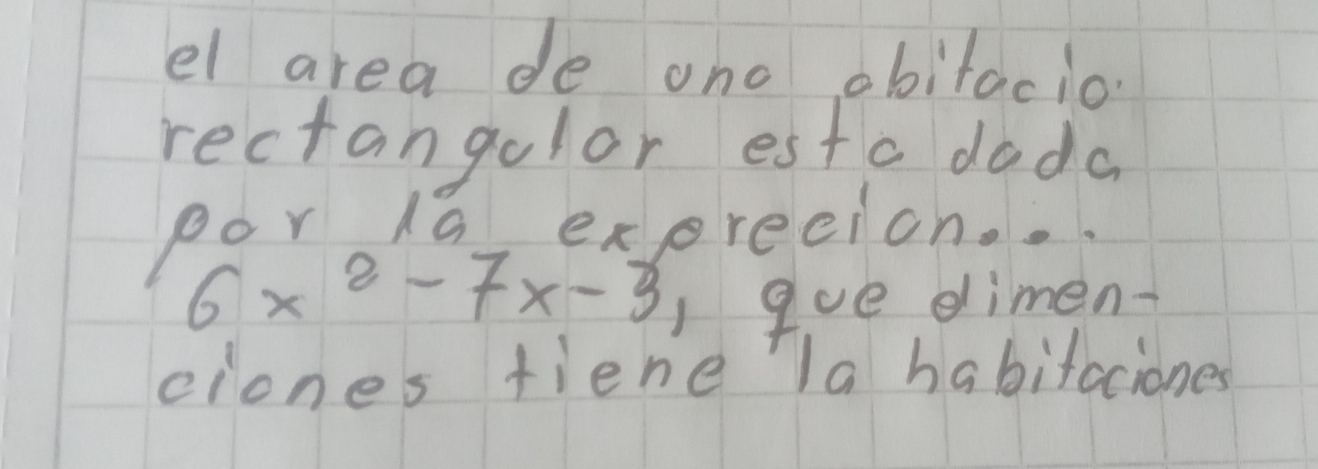 el area de una abitacio
rectangular esta dada
por la exprecion...
6x² - 7x - 3, que dimen-
ciones tiene la habitaciones